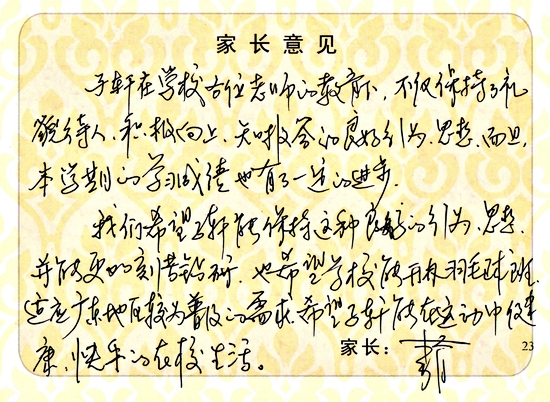 家长意见
子轩在学校各位老师的教育下,不仅保持了礼
貌待人、积极向上、知书答的良好行为、思想,而且,
本学期的学习成绩也有了一定的进步。
我们希望子轩能保持这种良好的行为、思想,
并能更加刻苦钻研,也希望学校能开展羽毛球班,
适应广东地区较为普及的需求,希望子轩能在运动中健
康、快乐的在校生活。
家长:
23